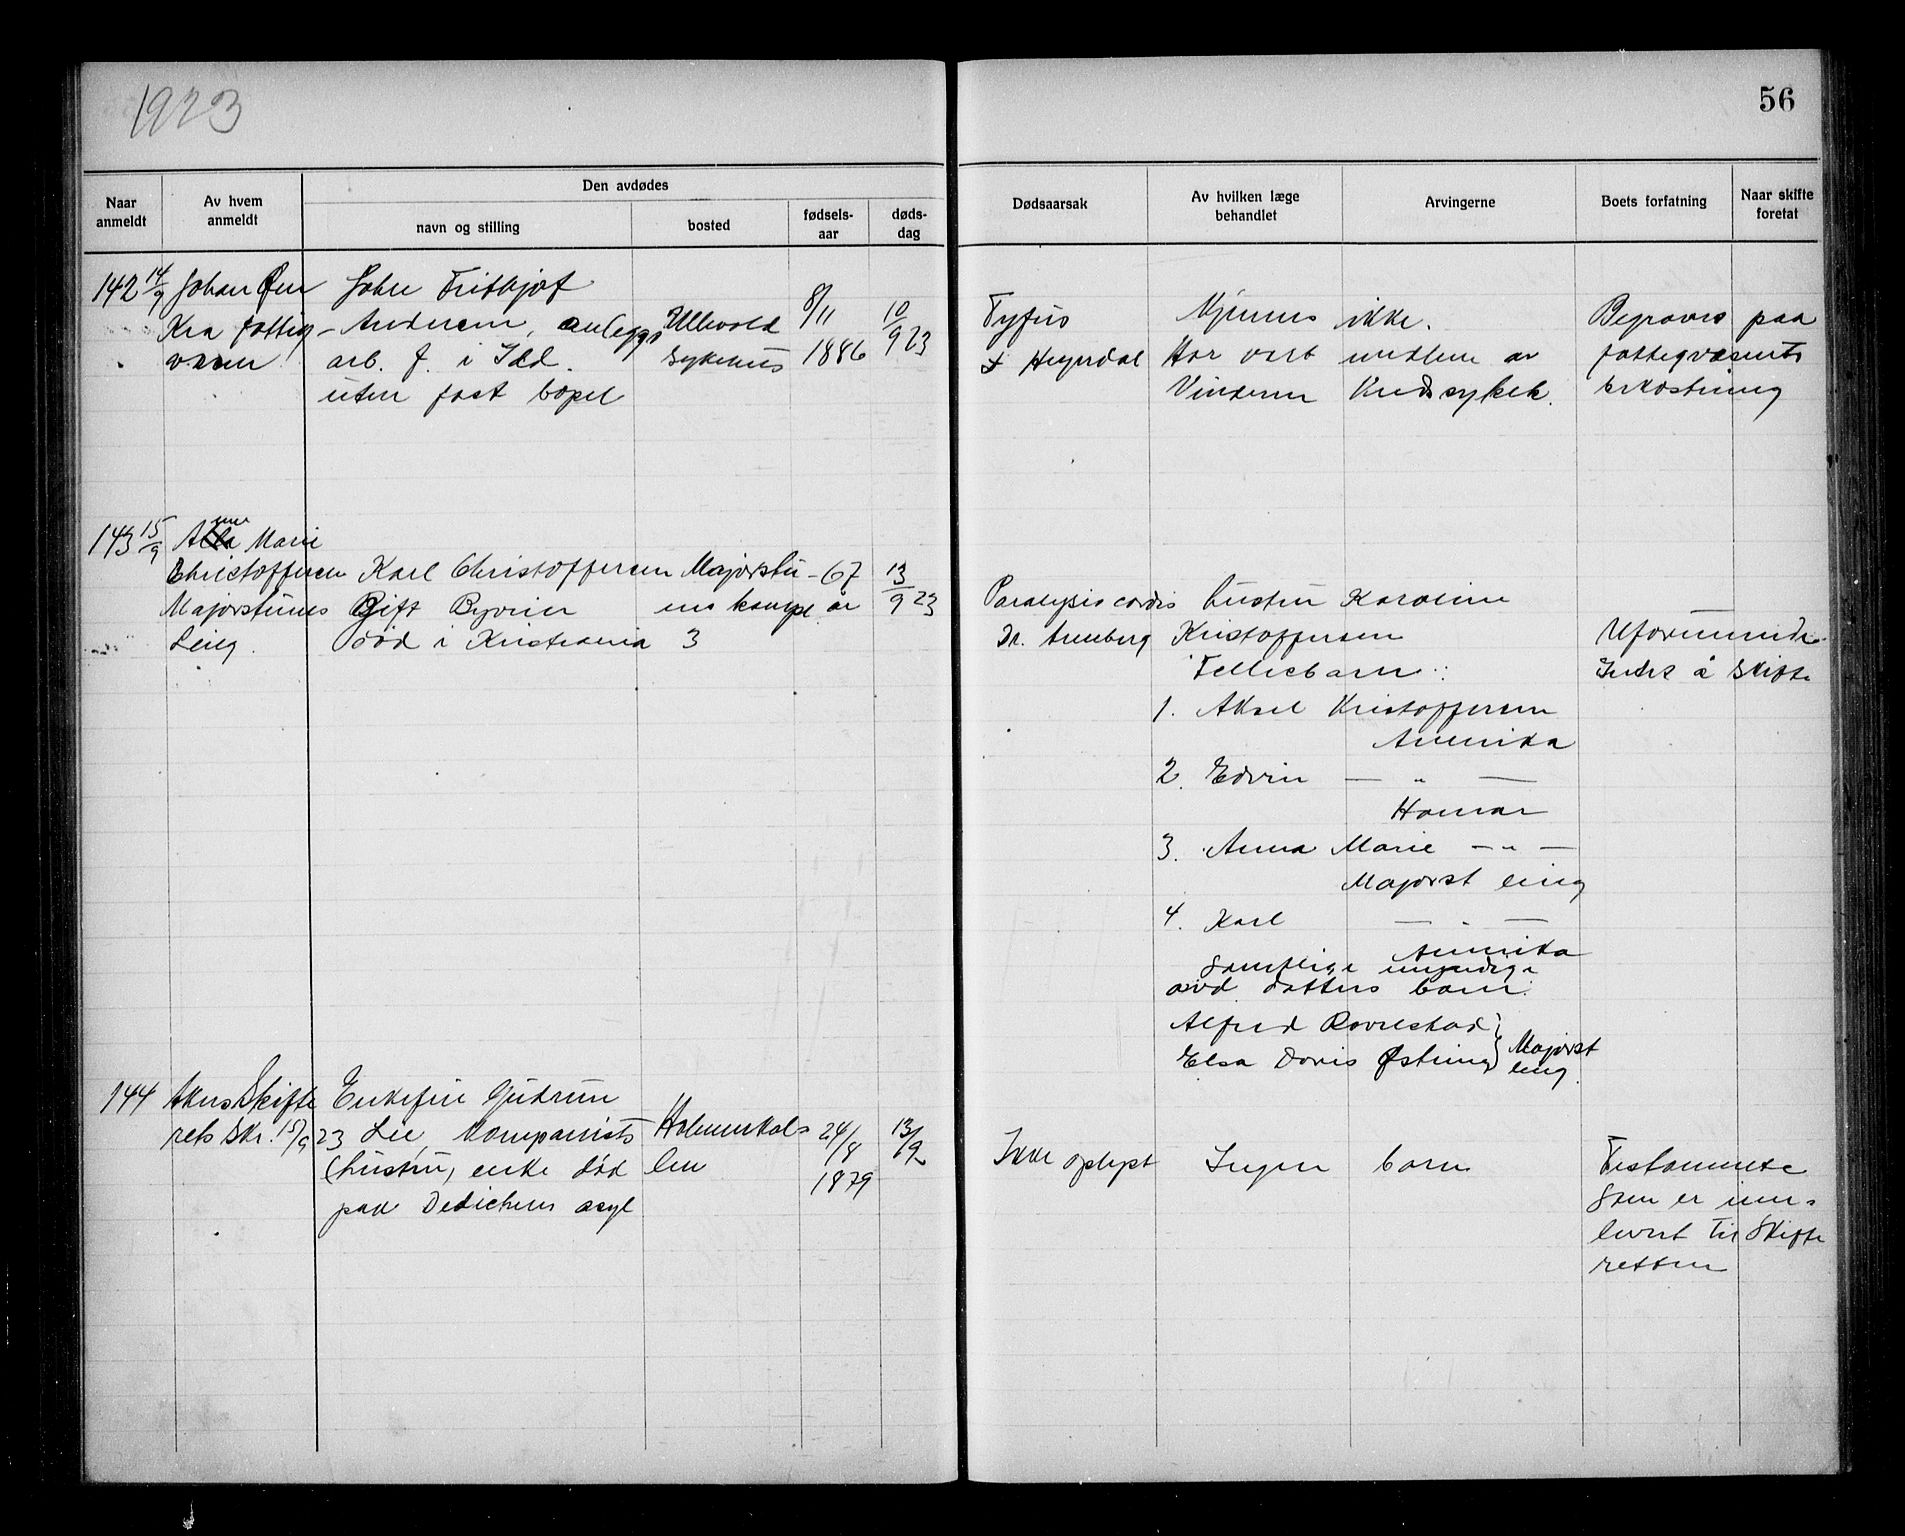 1923
56
Naar anmeldt
Av hvem anmeldt
Den avdødes
navn og stilling
bosted
fødsels-aar
døds-dag
Dødsaarsak
Av hvilken læge behandlet
Arvingerne
Boets forfatning
Naar skifte foretat
142 14/9 Johan
Kra fattig
væsen
John Frithjof
Andersen, anleggs
arb. f. i Idd.
uten fast bopel
Ullevold
sykehus
8/11
1886
10/9 23
Tyfus
Heyerdal
Kjennes ikke.
Har vært medlem av
Vinderen Kredssykek.
Begraves paa
fattigvæsenets
bekostning
143 15/9 Anna Marie
Christoffersen
Majorstuens
Leieg.
Karl Christoffersen
Gift
død i Kristiania
Majorstu-
ens kompl.
3
67
år
13/9 23
Paralysis cordis
Dr. Arenberg
hustru Karoline
Kristoffersen
Fellesbarn:
1. Aksel Kristoffersen
Amerika
2. Edvin — " —
Hamar
3. Anna Marie — " —
Majorst leieg
4. Karl — " —
Amerika
samtlige myndige
avd. datters barn:
Alfred
Elsa Doris
Majorst
leieg.
Uformuende
Intet å skifte
144 Akers Skifte
rets skr. 15/9 23
Enkefru Gudrun
Lie, Komponists
(hustru) enke død
paa Dedichens asyl
Holmenkol-
len
24/8
1879
13/9
Ikke oplyst
Ingen barn
Testamente
som er inn-
levert til Skifte
retten